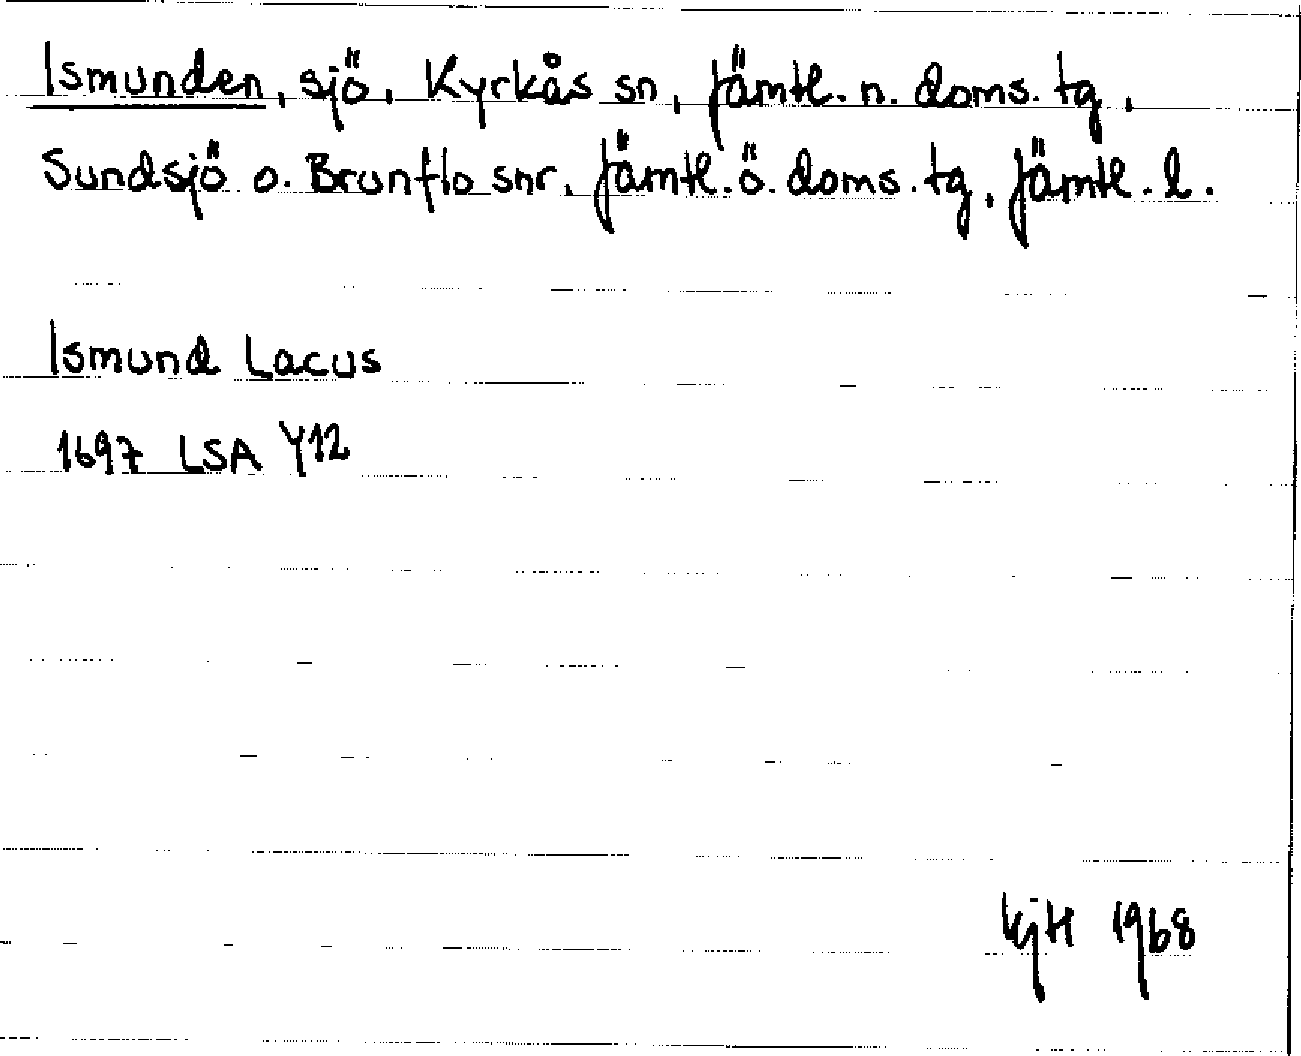 Ismunden, sjö, Kyrkås sn, Jämtl. n. doms. tg,
Sundsjö o. Brunflo snr, Jämtl. ö. doms. tg, Jämtl. l.
Ismund Lacus
1697 LSA Y12
KjH 1968